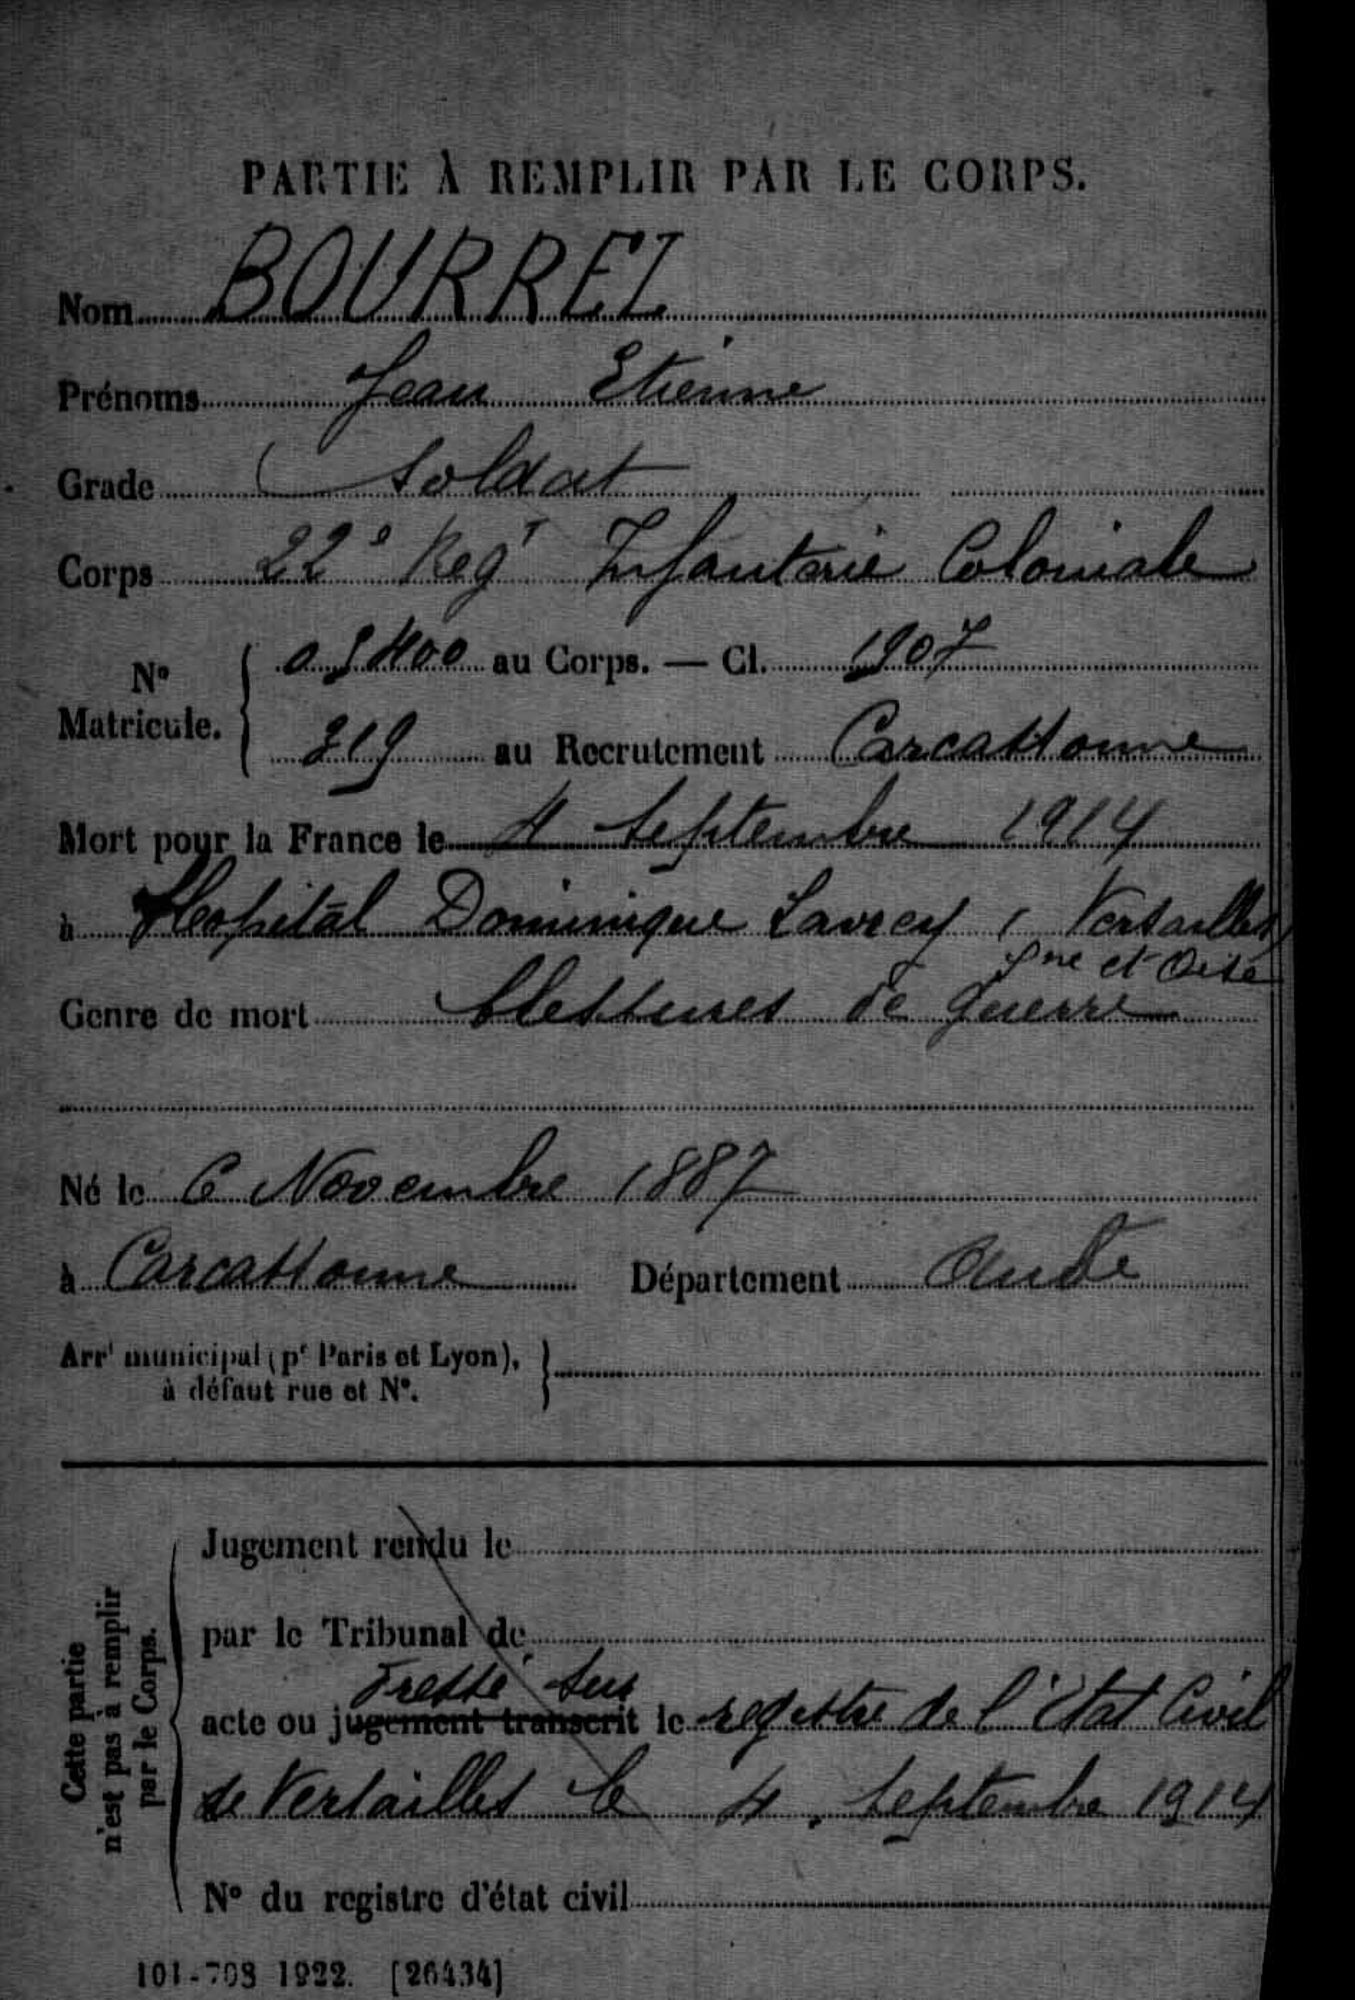 PARTIE À REMPLIR PAR LE CORPS.
Nom BOURREL
Prénoms Jean Etienne
Grade Soldat
Corps 22e Regt Infanterie Coloniale
No Matricule. { au Corps. — Cl. 1907
319 au Recrutement Carcassonne
Mort pour la France le 4 Septembre 1914
à Hospital Dominique Larrey, Versailles
Sne et Oise
Genre de mort blessures de guerre
Né le 6 Novembre 1887
à Carcassonne Département Aude
Arrt municipal (pr Paris et Lyon),
à défaut rue et N°.
Cette partie
n'est pas à remplir
par le Corps.
Jugement rendu le
par le Tribunal de
Dressé sur
acte ou jugement transcrit le registre de l'Etat Civil
de Versailles le 4 Septembre 1914
N° du registre d'état civil
101-708 1922. [26434]